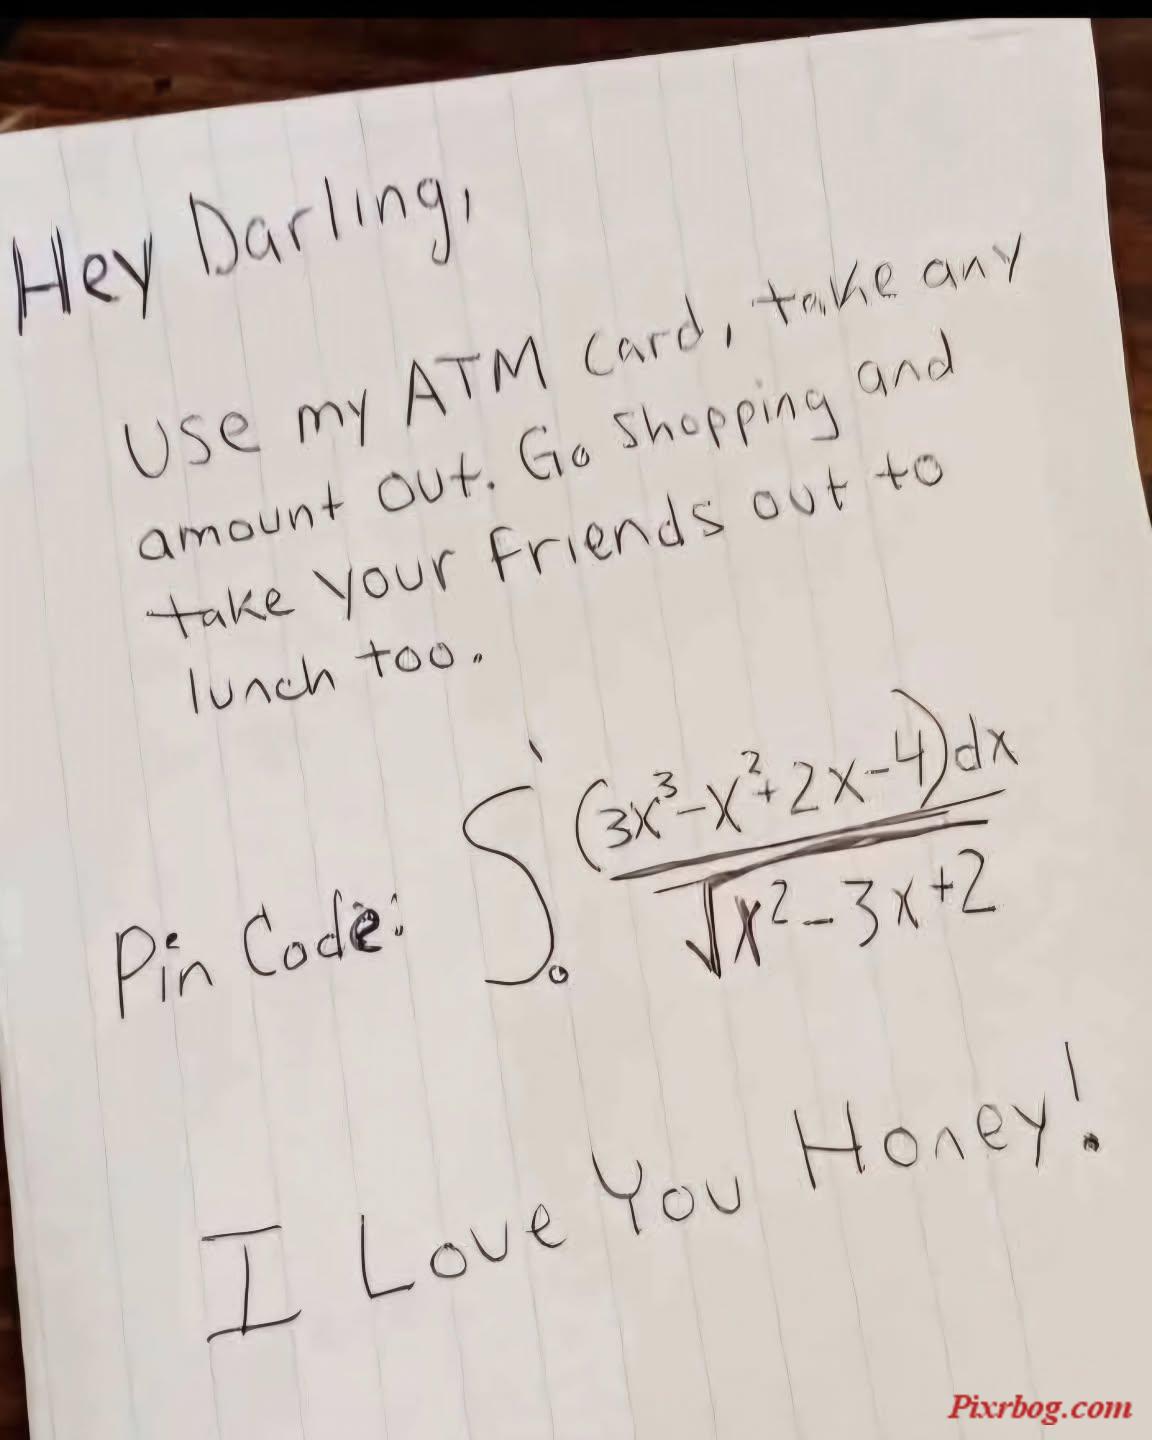 Hey Darling,
Use my ATM Card, take any
amount out. Go shopping and
take your friends out to
lunch too.
Pin Code: ∫₀¹ (3x³-x²+2x-4)dx / √x²-3x+2
I Love You Honey!
Pixrbog.com